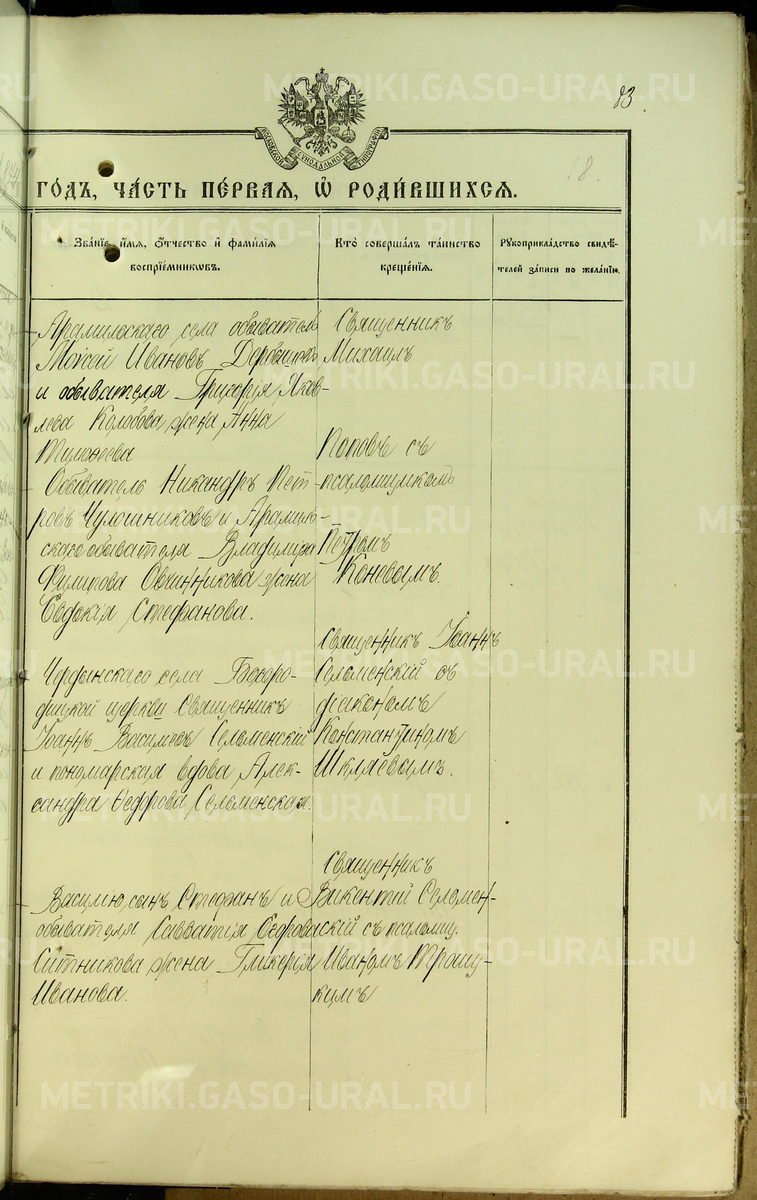 METRIKI.GASO-URAL.RU
83.
МОСКОВСКОЙ СѴНОДАЛЬНОЙ ТИПОГРАФІИ
18.
ГОДЪ, ЧАСТЬ ПЕРВАЯ, Ѿ РОДИВШИХСЯ.
Званіе, имя, отчество и фамилія
воспріемниковъ.
Кто совершалъ таинство
крещенія.
Рукоприкладство свидѣ-
телей записи по желанію.
Арамильскаго села обыватель
Моѵсей Ивановъ
и обывателя Григорія Яков-
лева Колобова жена Анна
Тимоѳеева
Священникъ
Михаилъ
Поповъ съ
псаломщикомъ
Петромъ
Коневымъ.
Обыватель Никандръ Пет-
ровъ Чулошниковъ и Арамиль-
скаго обывателя Владиміра
Филипова Овчинникова жена
Евдокія Стефанова.
Чердынскаго села Богоро-
дицкой церкви Священникъ
Іоаннъ Васильевъ Сельменскій
и пономарская вдова Алек-
сандра Ѳедорова Сельменская.
Священникъ Іоаннъ
Сельменскій съ
діакономъ
Константиномъ
Шкляевымъ.
сынъ Стефанъ и
обывателя Савватія Ѳедрова
Ситникова жена Гликерія
Иванова.
Священникъ
Викентій Селемен-
скій съ псаломщ.
Иваномъ Трошу-
кимъ